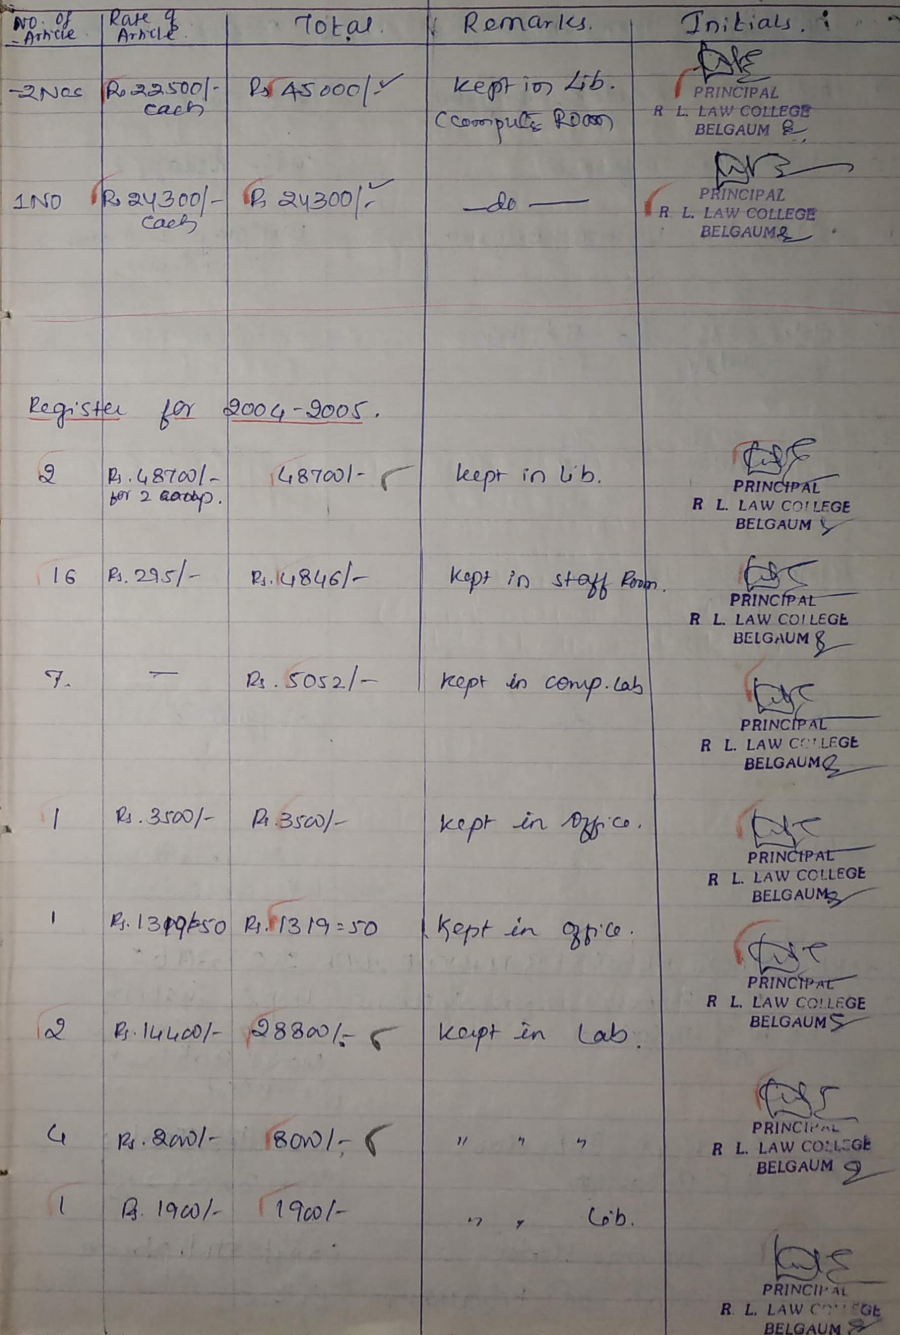 No. of Article Rate of Article Total Remarks. Initials.
2Nos Rs 22500/- each Rs 45000/- kept in Lib.
PRINCIPAL
R L. LAW COLLEGE
BELGAUM
1NO Rs 24300/- each Rs 24300/- —do—
PRINCIPAL
R L. LAW COLLEGE
BELGAUM
Register for 2004-2005.
2 Rs. 48700/- for 2 48700/- kept in Lib.
PRINCIPAL
R L. LAW COLLEGE
BELGAUM
16 Rs. 295/- Rs. 4846/- kept in staff Room.
PRINCIPAL
R L. LAW COLLEGE
BELGAUM
7. — Rs. 5052/- kept in comp. Lab
PRINCIPAL
R L. LAW COLLEGE
BELGAUM
1 Rs. 3500/- Rs 3500/- kept in office.
PRINCIPAL
R L. LAW COLLEGE
BELGAUM
1 Rs. 1319=50 Rs. 1319=50 Kept in office.
PRINCIPAL
R L. LAW COLLEGE
BELGAUM
2 Rs. 14400/- 28800/- kept in Lab.
PRINCIPAL
R L. LAW COLLEGE
BELGAUM
4 Rs. 2000/- 8000/- " " "
1 Rs. 1900/- 1900/- " " Lib.
PRINCIPAL
R. L. LAW COLLEGE
BELGAUM